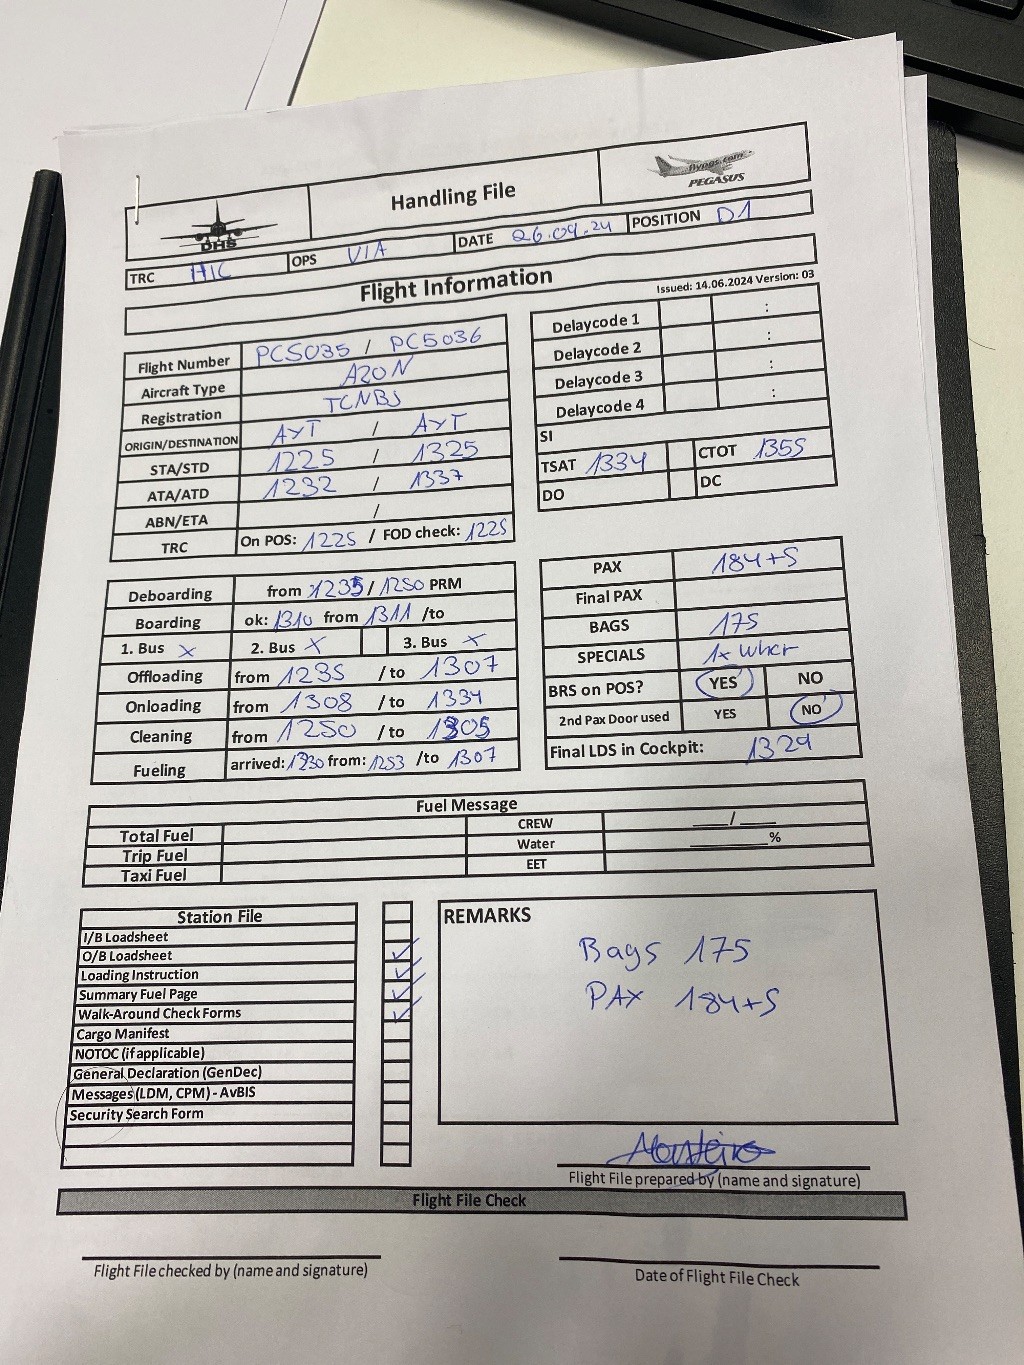 DHS
Handling File
flypgs.com
PEGASUS
TRC HIC OPS VIA DATE 26.09.24 POSITION D1
Flight Information
Issued: 14.06.2024 Version: 03
Flight Number PC5035 / PC5036
Aircraft Type A20N
Registration TCNBJ
ORIGIN/DESTINATION AYT / AYT
STA/STD 1225 / 1325
ATA/ATD 1232 / 1337
ABN/ETA /
TRC On POS: 1225 / FOD check: 1225
Delaycode 1 :
Delaycode 2 :
Delaycode 3 :
Delaycode 4 :
SI
TSAT 1334 CTOT 1355
DO DC
Deboarding from 1235 / 1250 PRM
Boarding ok: 1310 from 1311 /to
1. Bus x 2. Bus x 3. Bus x
Offloading from 1235 /to 1307
Onloading from 1308 /to 1334
Cleaning from 1250 /to 1305
Fueling arrived: 1230 from: 1253 /to 1307
PAX 184+5
Final PAX
BAGS 175
SPECIALS 1x Whcr
BRS on POS? YES NO
2nd Pax Door used YES NO
Final LDS in Cockpit: 1329
Fuel Message
Total Fuel CREW ____/____
Trip Fuel Water ________%
Taxi Fuel EET
Station File
I/B Loadsheet
O/B Loadsheet ✓
Loading Instruction ✓
Summary Fuel Page ✓
Walk-Around Check Forms ✓
Cargo Manifest
NOTOC (if applicable)
General Declaration (GenDec)
Messages (LDM, CPM) - AvBIS
Security Search Form
REMARKS
Bags 175
PAX 184+5
Flight File prepared by (name and signature)
Flight File Check
Flight File checked by (name and signature)
Date of Flight File Check